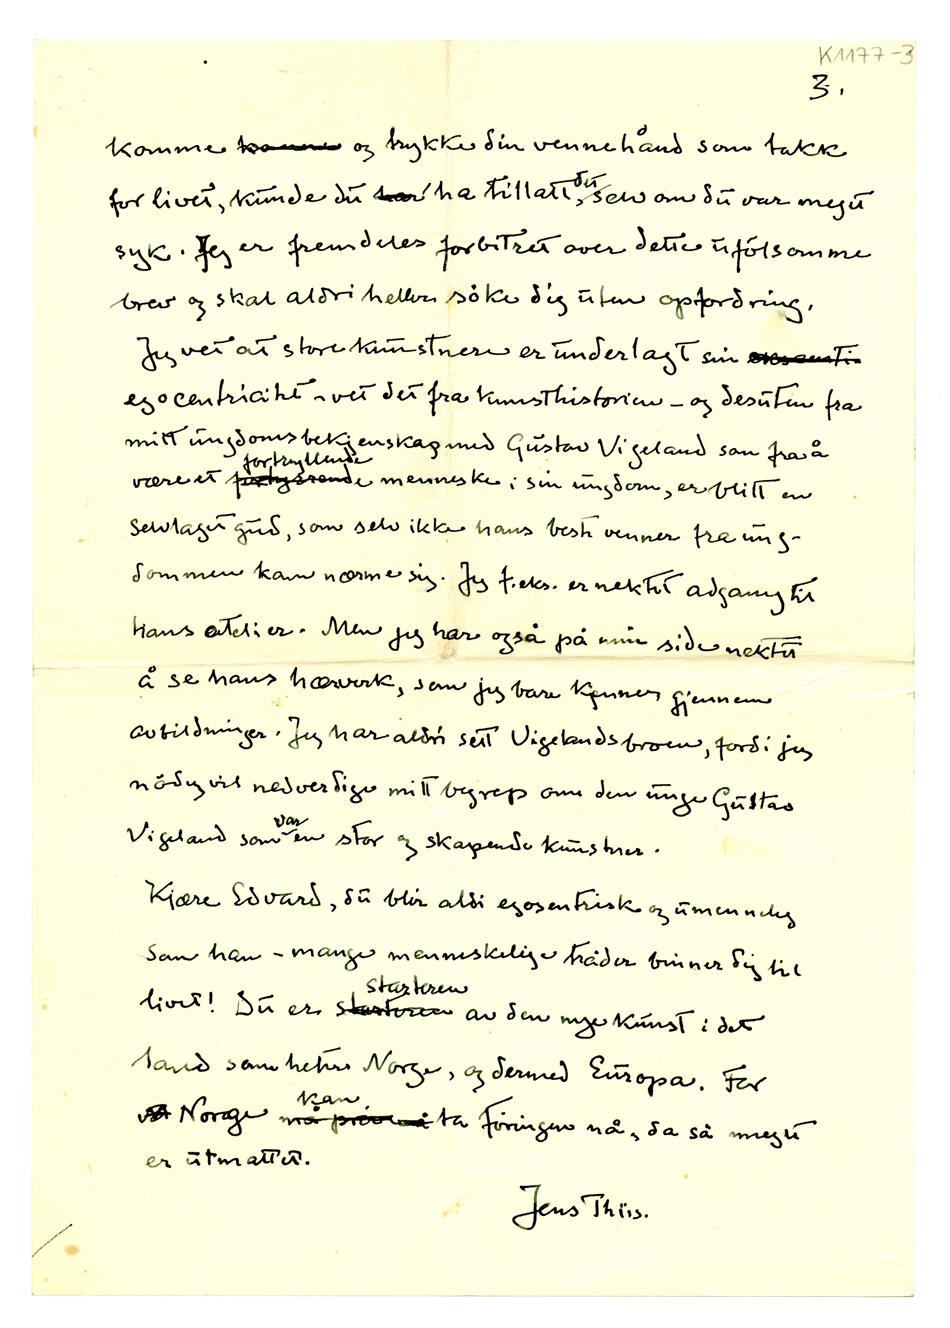 K1177-3
3.
komme komme og trykke din vennehånd som takk
for livet, kunde du har ha tillatt, du selv om du var meget
syk. Jeg er fremdeles forbitret over dette ufölsomme
brev og skal aldri heller söke dig uten opfordring.
Jeg vet at store kunstnere er underlagt sin
egocentricitet – vet det fra kunsthistorien – og desuten fra
mitt ungdomsbekjenskap med Gustav Vigeland som fra å
fortryllende
være et menneske i sin ungdom, er blitt en
selvlaget gud, som selv ikke hans beste venner fra ung-
dommen kan nærme sig. Jeg f.eks. er nektet adgang til
hans atelier. Men jeg har også på min side nektet
å se hans hærverk, som jeg bare kjenner gjennem
avbildninger. Jeg har aldri sett Vigelandsbroen, fordi jeg
nödig vil nedverdige mitt begrep om den unge Gustav
Vigeland som var en stor og skapende kunstner.
Kjære Edvard, du blir aldri egosentrisk og umenneskelig
som han – mange menneskelige tråder binner dig til
startere​n
livet! Du er starteren av den nye kunst i det
land som heter Norge, og dermed Europa. For
kan
Norge må pröve å ta föringen nå, da så meget
er utmattet.
Jens Thiis.